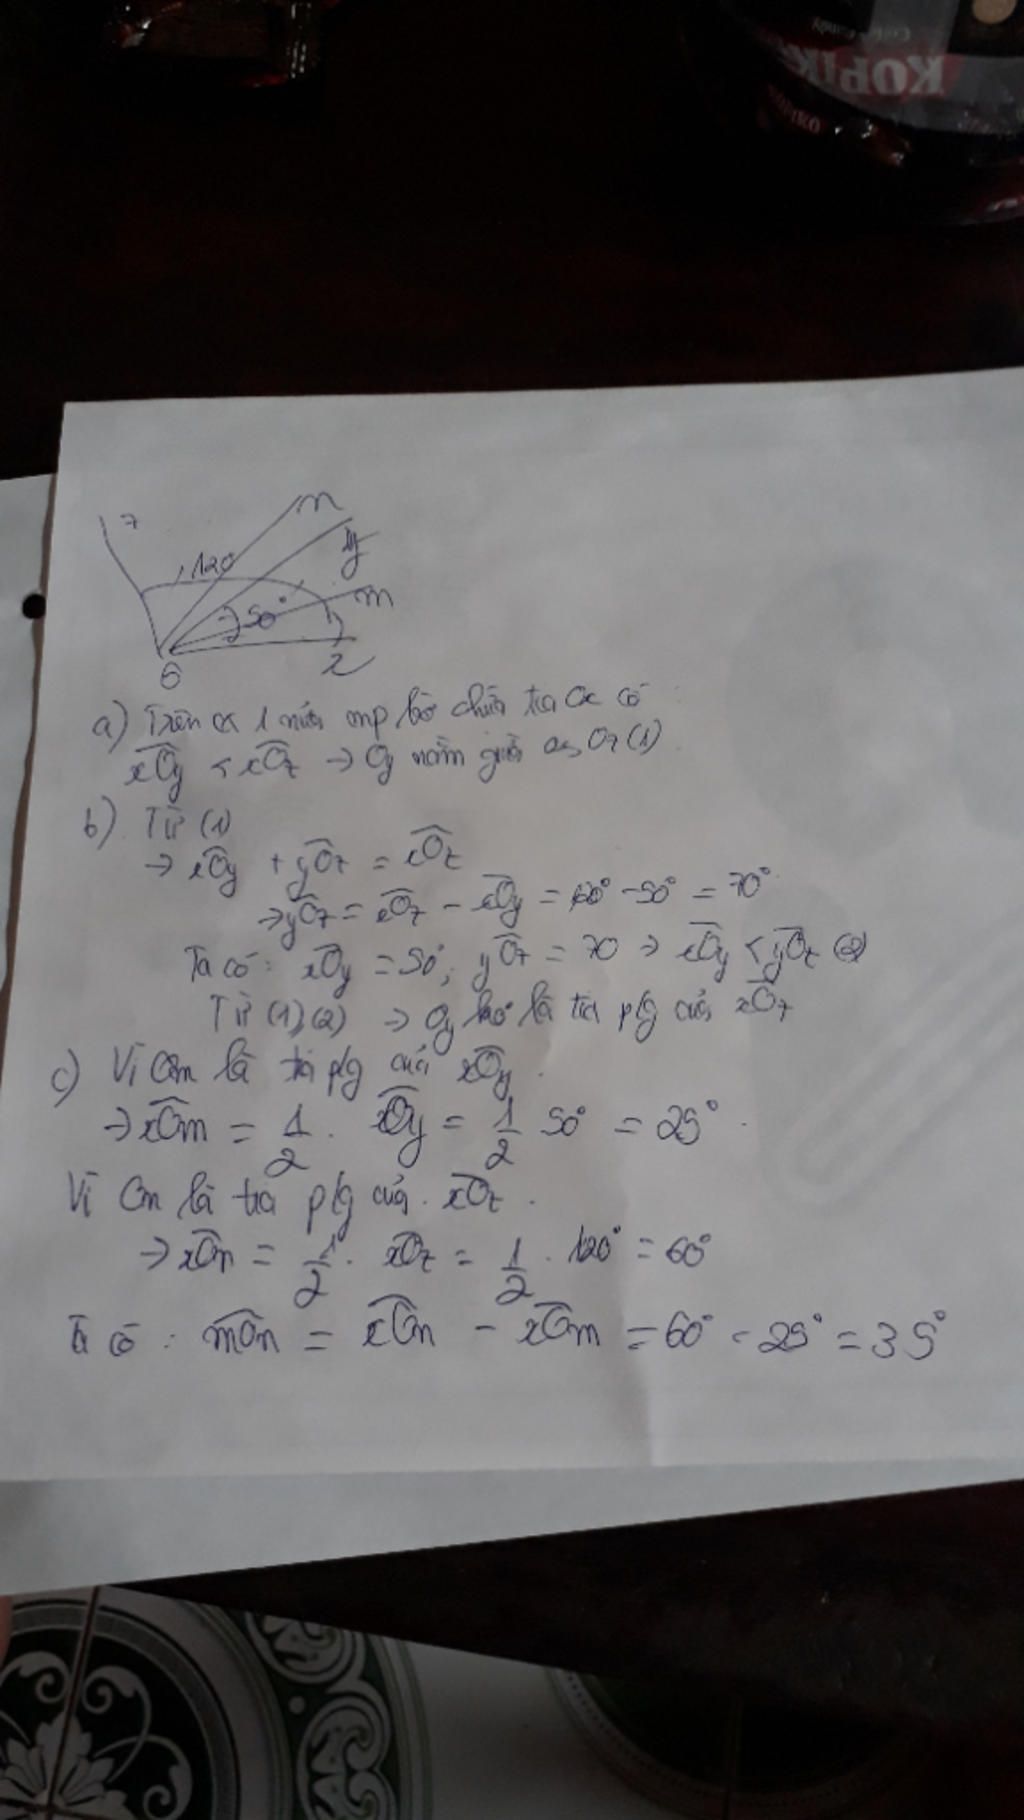 KOPIK
z
n
120
y
50°
m
O
x
a) Trên cx 1 nửa mp bờ chứa tia Ox có
xOy < xOz → Oy nằm giữa Oz (1)
b) Từ (1)
→ xOy + yOz = xOz
→ yOz = xOz - xOy = 120° - 50° = 70°
Ta có: xOy = 50°, yOz = 70 → xOy < yOz (2)
Từ (1)(2) → Oy ko là tia p/g của xOz
c) Vì Om là tia p/g của xOy.
→ xOm = 1/2 . xOy = 1/2 50° = 25°.
Vì On là tia p/g của . xOz.
→ xOn = 1/2 . xOz = 1/2 . 120° = 60°
Ta có : mOn = xOn - xOm = 60° - 25° = 35°